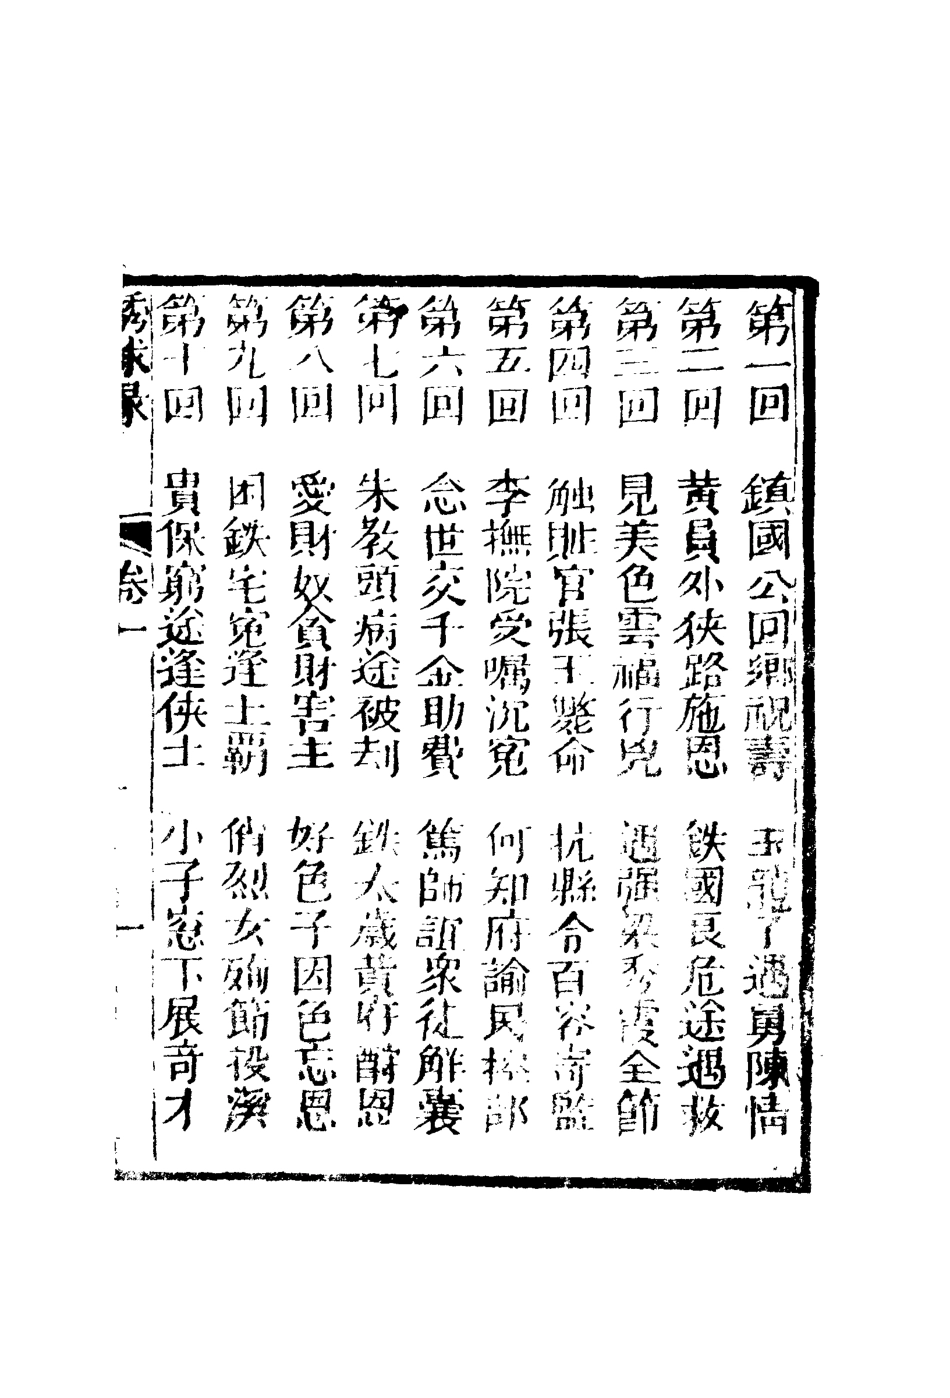 第一回　鎮國公回鄉祝壽　玉龍丁遇舅陳情
第二回　黃員外狹路施恩　鉄國良危途遇救
第三回　見美色雲福行兇　遇强梁秀霞全節
第四回　触賍官張王斃命　抗縣令百容寄監
第五回　李撫院受嘱沉寃　何知府諭民
第六回　念世交千金助費　篤師誼衆徒解囊
第七回　朱教頭病途被刦　鉄太歲黃府酧恩
第八回　愛財奴貪財害主　好色子因色忘恩
第九回　困鉄宅寃逢土覇　俏烈女殉節投溪
第十回　貴保窮途逢俠士　小子崽下展竒才
秀球录　卷一　一